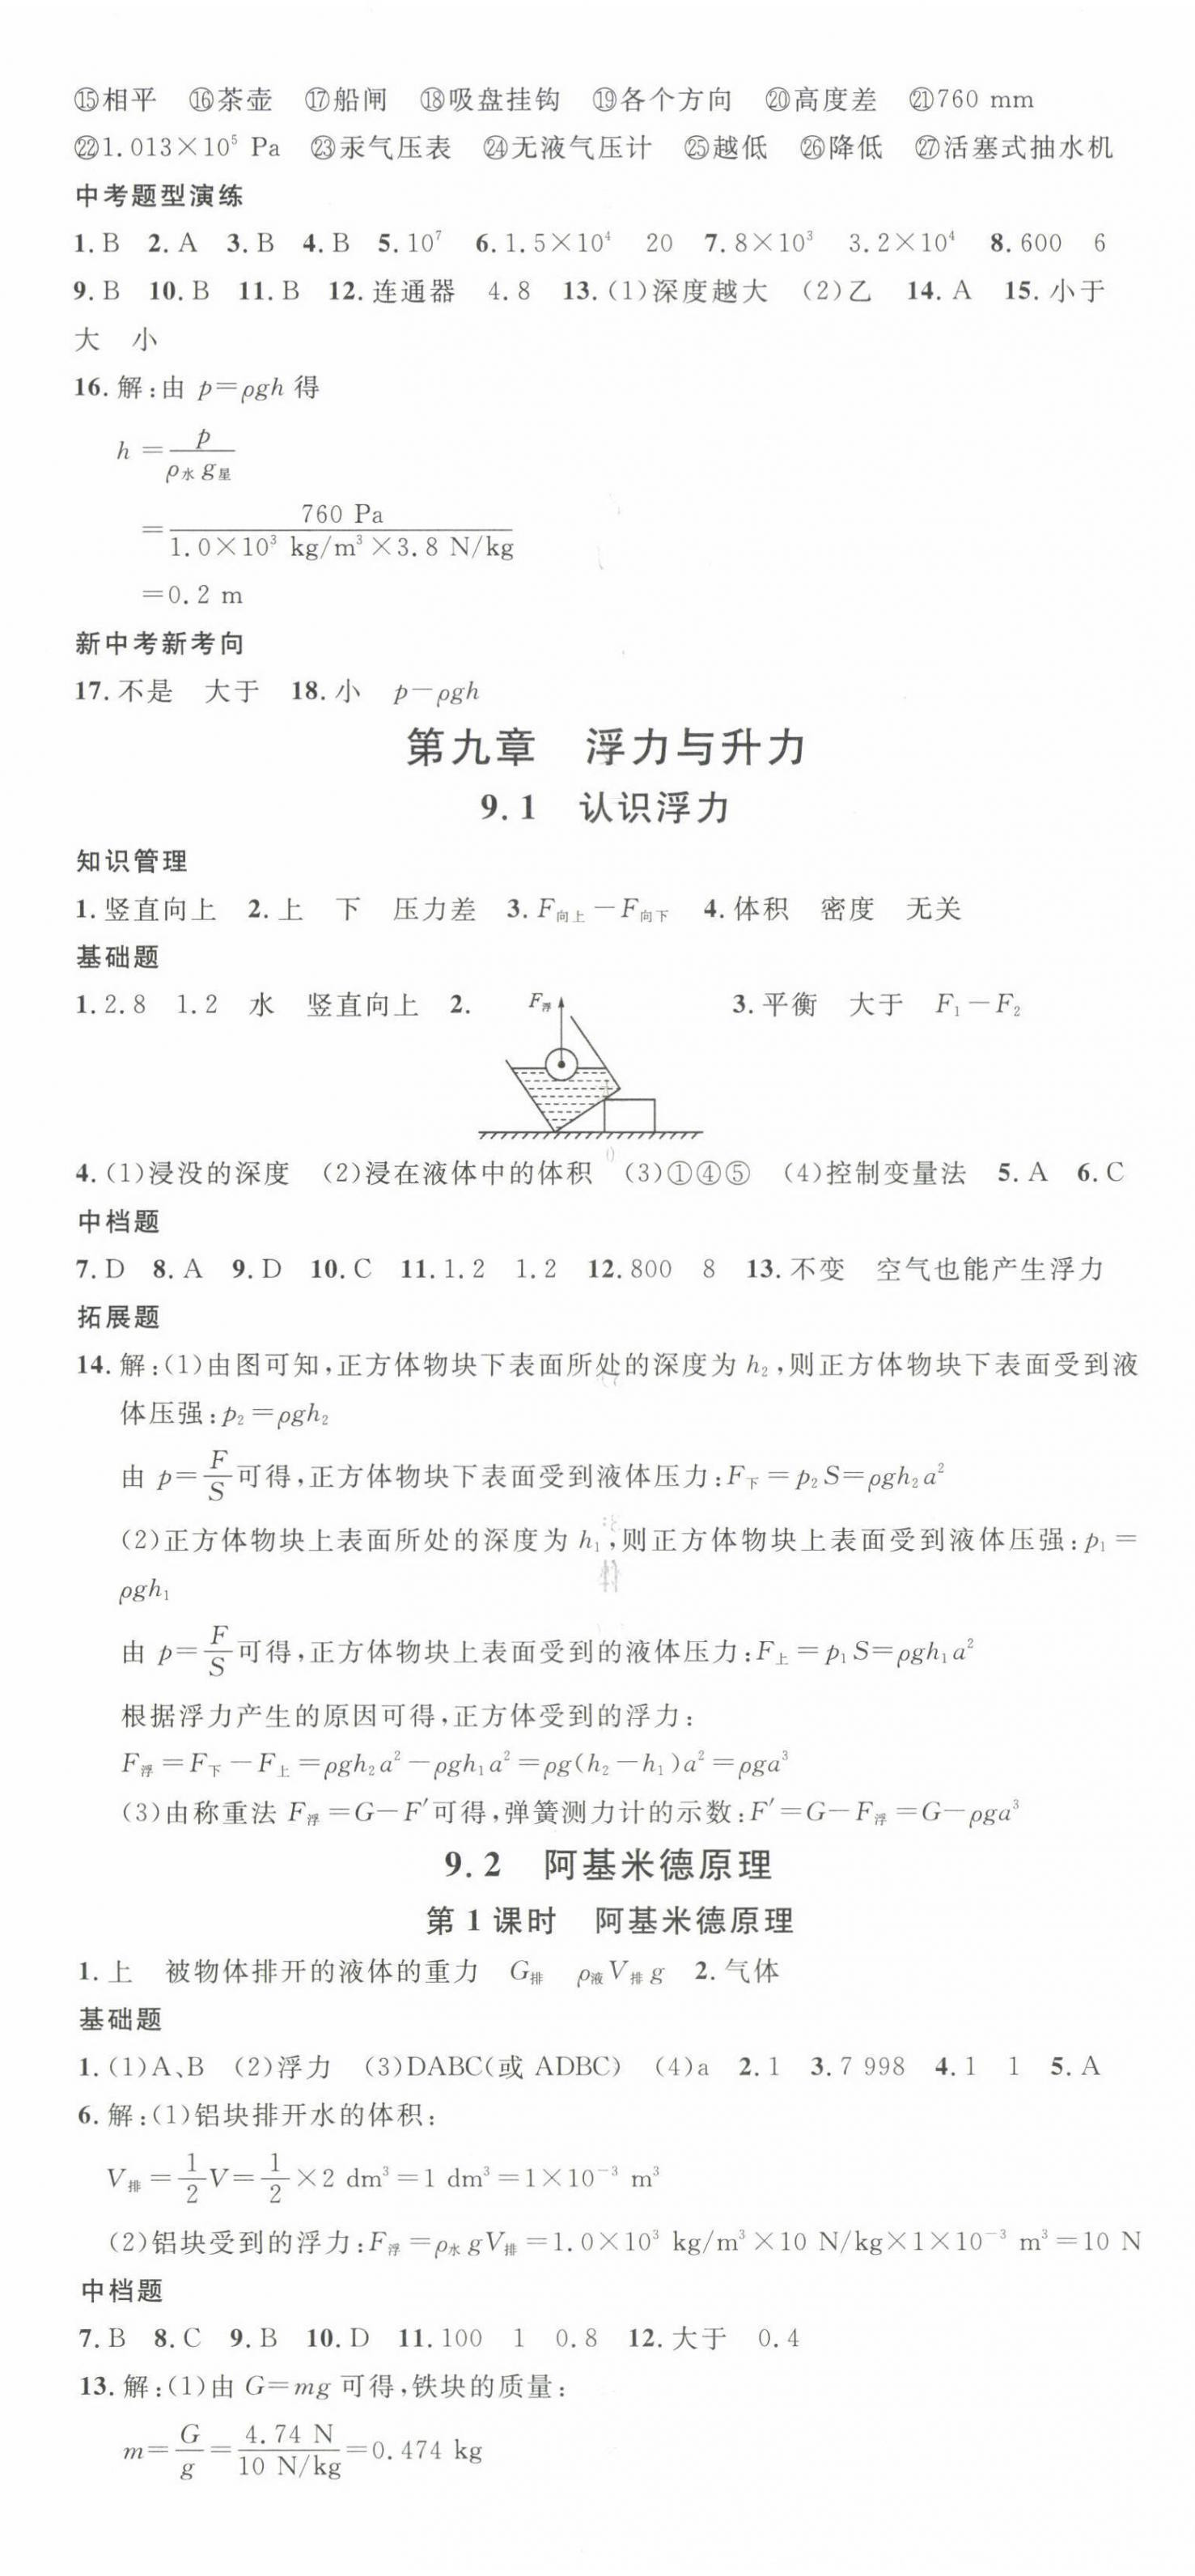 ⑮相平 ⑯茶壶 ⑰船闸 ⑱吸盘挂钩 ⑲各个方向 ⑳高度差 ㉑760 mm
㉒1.013×10⁵ Pa ㉓汞气压表 ㉔无液气压计 ㉕越低 ㉖降低 ㉗活塞式抽水机
中考题型演练
1.B 2.A 3.B 4.B 5.10⁷ 6.1.5×10⁴ 20 7.8×10³ 3.2×10⁴ 8.600 6
9.B 10.B 11.B 12.连通器 4.8 13.(1)深度越大 (2)乙 14.A 15.小于
大 小
16.解:由 p=ρgh 得
h=p/(ρ水g星)
=760 Pa/(1.0×10³ kg/m³×3.8 N/kg)
=0.2 m
新中考新考向
17.不是 大于 18.小 p-ρgh
第九章 浮力与升力
9.1 认识浮力
知识管理
1.竖直向上 2.上 下 压力差 3.F向上-F向下 4.体积 密度 无关
基础题
1.2.8 1.2 水 竖直向上 2. F浮 3.平衡 大于 F₁-F₂
4.(1)浸没的深度 (2)浸在液体中的体积 (3)①④⑤ (4)控制变量法 5.A 6.C
中档题
7.D 8.A 9.D 10.C 11.1.2 1.2 12.800 8 13.不变 空气也能产生浮力
拓展题
14.解:(1)由图可知,正方体物块下表面所处的深度为 h₂,则正方体物块下表面受到液
体压强:p₂=ρgh₂
由 p=F/S可得,正方体物块下表面受到液体压力:F下=p₂S=ρgh₂a²
(2)正方体物块上表面所处的深度为 h₁,则正方体物块上表面受到液体压强:p₁=
ρgh₁
由 p=F/S可得,正方体物块上表面受到的液体压力:F上=p₁S=ρgh₁a²
根据浮力产生的原因可得,正方体受到的浮力:
F浮=F下-F上=ρgh₂a²-ρgh₁a²=ρg(h₂-h₁)a²=ρga³
(3)由称重法 F浮=G-F′可得,弹簧测力计的示数:F′=G-F浮=G-ρga³
9.2 阿基米德原理
第1课时 阿基米德原理
1.上 被物体排开的液体的重力 G排 ρ液V排g 2.气体
基础题
1.(1)A、B (2)浮力 (3)DABC(或 ADBC) (4)a 2.1 3.7 998 4.1 1 5.A
6.解:(1)铝块排开水的体积:
V排=1/2V=1/2×2 dm³=1 dm³=1×10⁻³ m³
(2)铝块受到的浮力:F浮=ρ水gV排=1.0×10³ kg/m³×10 N/kg×1×10⁻³ m³=10 N
中档题
7.B 8.C 9.B 10.D 11.100 1 0.8 12.大于 0.4
13.解:(1)由 G=mg 可得,铁块的质量:
m=G/g=4.74 N/10 N/kg=0.474 kg